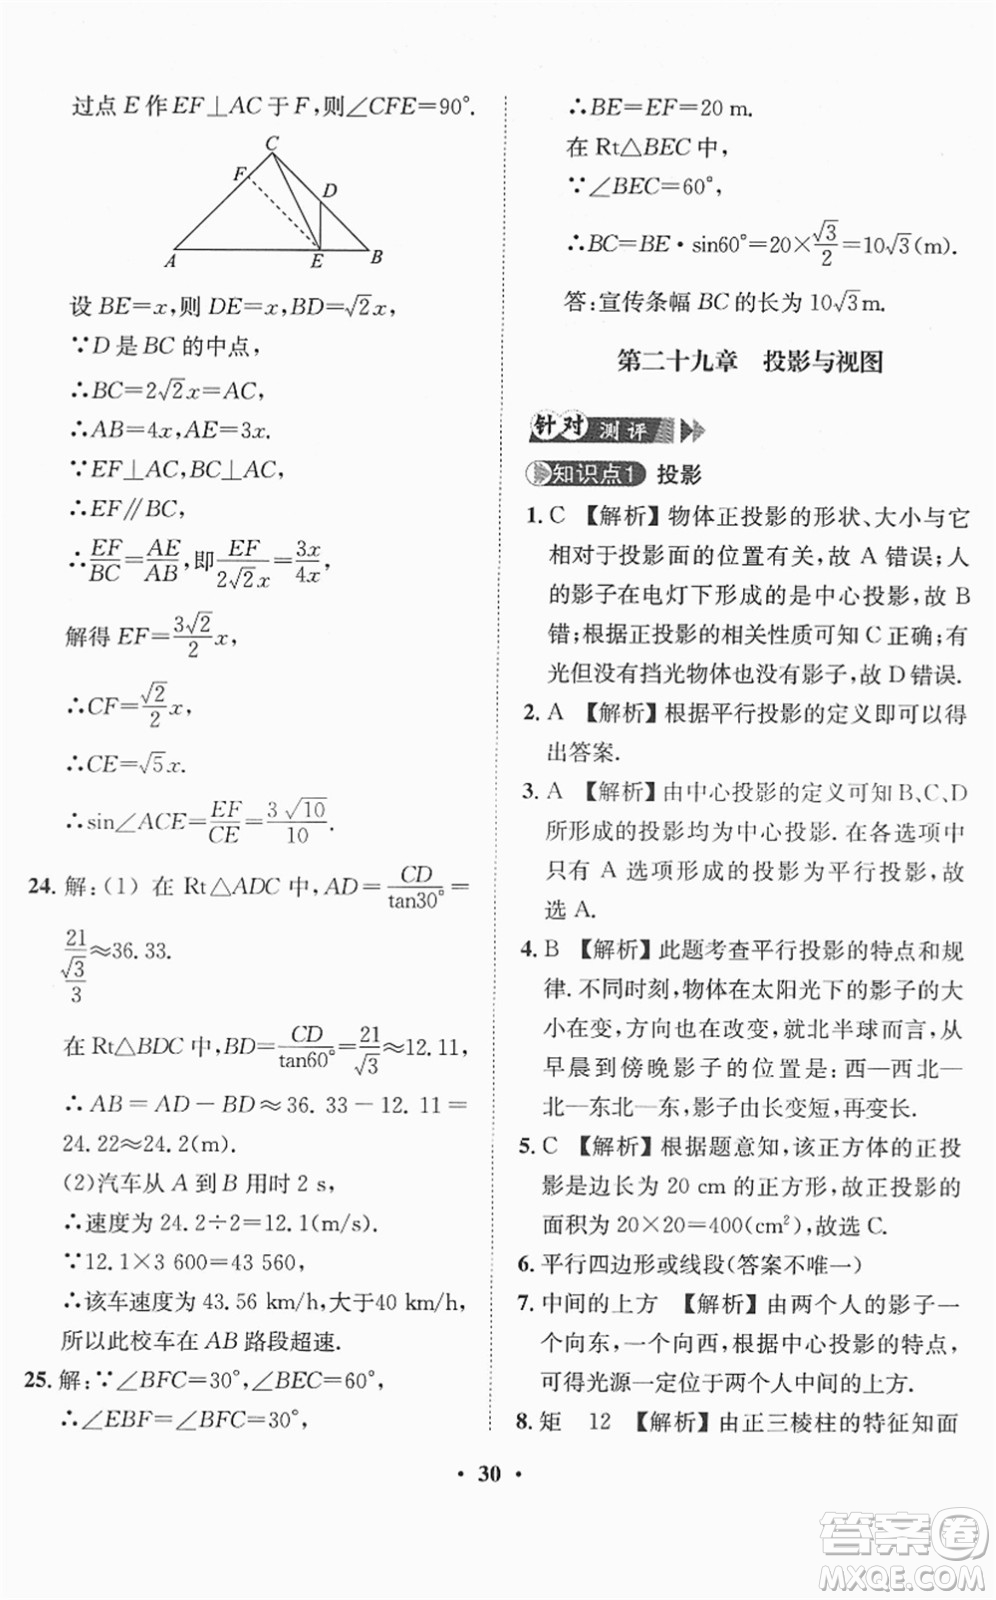 过点 E 作 EF⊥AC 于 F,则∠CFE=90°.
C
F
D
A
E
B
设 BE=x,则 DE=x,BD=√2x,
∵D 是 BC 的中点,
∴BC=2√2x=AC,
∴AB=4x,AE=3x.
∵EF⊥AC,BC⊥AC,
∴EF∥BC,
∴EF/BC=AE/AB,即EF/2√2x=3x/4x,
解得 EF=3√2/2 x,
∴CF=√2/2 x,
∴CE=√5x.
∴sin∠ACE=EF/CE=3√10/10.
24. 解:(1) 在 Rt△ADC 中,AD=CD/tan30°=
21/(√3/3)≈36.33.
在 Rt△BDC 中,BD=CD/tan60°=21/√3≈12.11,
∴AB=AD-BD≈36.33-12.11=
24.22≈24.2(m).
(2)汽车从 A 到 B 用时 2 s,
∴速度为 24.2÷2=12.1(m/s).
∵12.1×3 600=43 560,
∴该车速度为 43.56 km/h,大于40 km/h,
所以此校车在 AB 路段超速.
25. 解:∵∠BFC=30°,∠BEC=60°,
∴∠EBF=∠BFC=30°,
∴BE=EF=20 m.
在 Rt△BEC 中,
∵∠BEC=60°,
∴BC=BE·sin60°=20×√3/2=10√3(m).
答:宣传条幅 BC 的长为 10√3m.
第二十九章 投影与视图
针对测评
知识点1 投影
1. C 【解析】物体正投影的形状、大小与它
相对于投影面的位置有关,故 A 错误;人
的影子在电灯下形成的是中心投影,故 B
错;根据正投影的相关性质可知 C 正确;有
光但没有挡光物体也没有影子,故 D 错误.
2. A 【解析】根据平行投影的定义即可以得
出答案.
3. A 【解析】由中心投影的定义可知 B、C、D
所形成的投影均为中心投影. 在各选项中
只有 A 选项形成的投影为平行投影,故
选 A.
4. B 【解析】此题考查平行投影的特点和规
律. 不同时刻,物体在太阳光下的影子的大
小在变,方向也在改变,就北半球而言,从
早晨到傍晚影子的位置是:西—西北—北
—东北—东,影子由长变短,再变长.
5. C 【解析】根据题意知,该正方体的正投
影是边长为 20 cm 的正方形,故正投影的
面积为 20×20=400(cm²),故选 C.
6. 平行四边形或线段(答案不唯一)
7. 中间的上方 【解析】由两个人的影子一
个向东,一个向西,根据中心投影的特点,
可得光源一定在两个人中间的上方.
8. 矩 12 【解析】由正三棱柱的特征知面
· 30 ·
答案卷
MXQE.COM